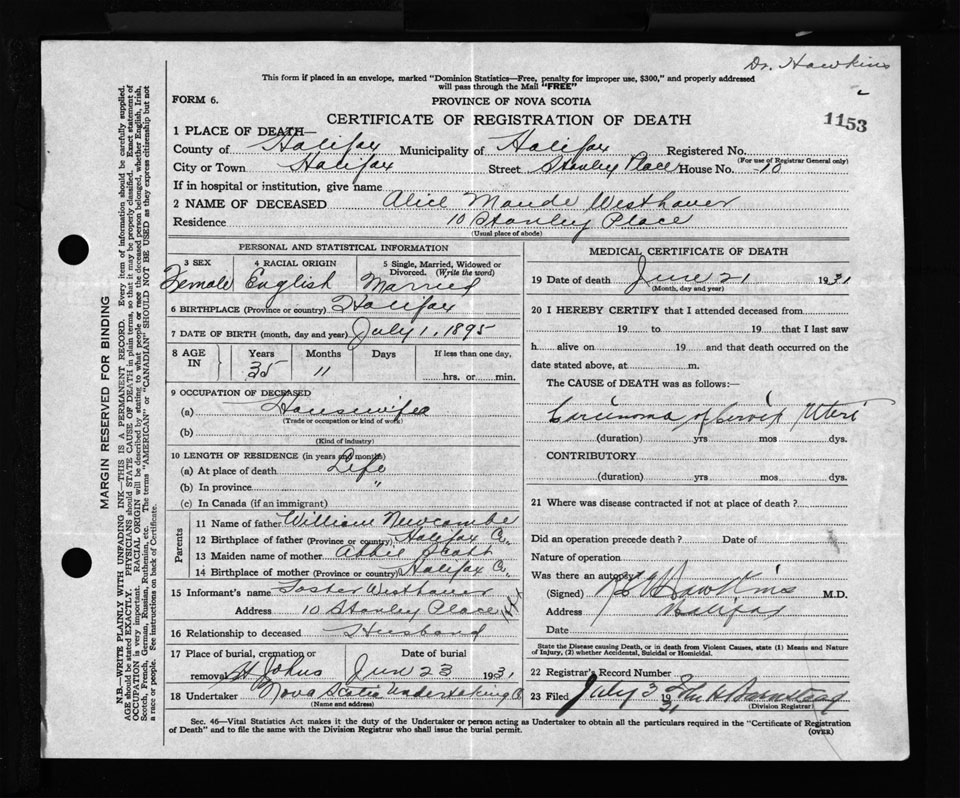 Dr. Hawkins
This form if placed in an envelope, marked "Dominion Statistics—Free, penalty for improper use, $300," and properly addressed
will pass through the Mail "FREE"
FORM 6.
PROVINCE OF NOVA SCOTIA
CERTIFICATE OF REGISTRATION OF DEATH
1153
1 PLACE OF DEATH—
County of Halifax Municipality of Halifax Registered No.
(For use of Registrar General only)
City or Town Halifax Street Stanley Place House No. 10
If in hospital or institution, give name
2 NAME OF DECEASED Alice Maude Westhaver
Residence 10 Stanley Place
(Usual place of abode)
PERSONAL AND STATISTICAL INFORMATION
3 SEX 4 RACIAL ORIGIN 5 Single, Married, Widowed or Divorced. (Write the word)
Female English Married
6 BIRTHPLACE (Province or country) Halifax
7 DATE OF BIRTH (month, day and year) July 1, 1895
8 AGE IN Years Months Days If less than one day,
35 11 hrs. or min.
9 OCCUPATION OF DECEASED
(a) Housewife
(Trade or occupation or kind of work)
(b)
(Kind of industry)
10 LENGTH OF RESIDENCE (in years and months)
(a) At place of death Life
(b) In province "
(c) In Canada (if an immigrant)
Parents
11 Name of father William Newcombe
12 Birthplace of father (Province or country) Halifax Co.
13 Maiden name of mother Abbie Scott
14 Birthplace of mother (Province or country) Halifax Co.
15 Informant's name Foster Westhaver
Address 10 Stanley Place Hfx
16 Relationship to deceased Husband
17 Place of burial, cremation or removal Date of burial
St Johns Jun 23 1931
18 Undertaker Nova Scotia Undertaking Co
(Name and address)
MEDICAL CERTIFICATE OF DEATH
19 Date of death June 21 1931
(Month, day and year)
20 I HEREBY CERTIFY that I attended deceased from
19 to 19 that I last saw
h alive on 19 and that death occurred on the
date stated above, at m.
The CAUSE of DEATH was as follows:
Carcinoma of Cervix Uteri
(duration) yrs mos dys.
CONTRIBUTORY
(duration) yrs mos dys.
21 Where was disease contracted if not at place of death?
Did an operation precede death? Date of
Nature of operation
Was there an autopsy?
(Signed) Hawkins M.D.
Address Halifax
Date
State the Disease causing Death, or in death from Violent Causes, state (1) Means and Nature
of Injury, (2) whether Accidental, Suicidal or Homicidal.
22 Registrar's Record Number
23 Filed July 3 1931 Barnstead
(Division Registrar)
Sec. 46—Vital Statistics Act makes it the duty of the Undertaker or person acting as Undertaker to obtain all the particulars required in the "Certificate of Registration
of Death" and to file the same with the Division Registrar who shall issue the burial permit.
(OVER)
MARGIN RESERVED FOR BINDING
N.B.—WRITE PLAINLY WITH UNFADING INK—THIS IS A PERMANENT RECORD. Every item of information should be carefully supplied.
AGE should be stated EXACTLY. PHYSICIANS should STATE CAUSE OF DEATH in plain terms, so that it may be properly classified. Exact statement of
OCCUPATION is very important. RACIAL ORIGIN will be described by stating to what people or race the deceased person belonged, whether English, Irish,
Scotch, French, German, Russian, Ruthenian, etc. The terms "AMERICAN" or "CANADIAN" SHOULD NOT BE USED as they express citizenship but not
a race or people. See instructions on back of Certificate.